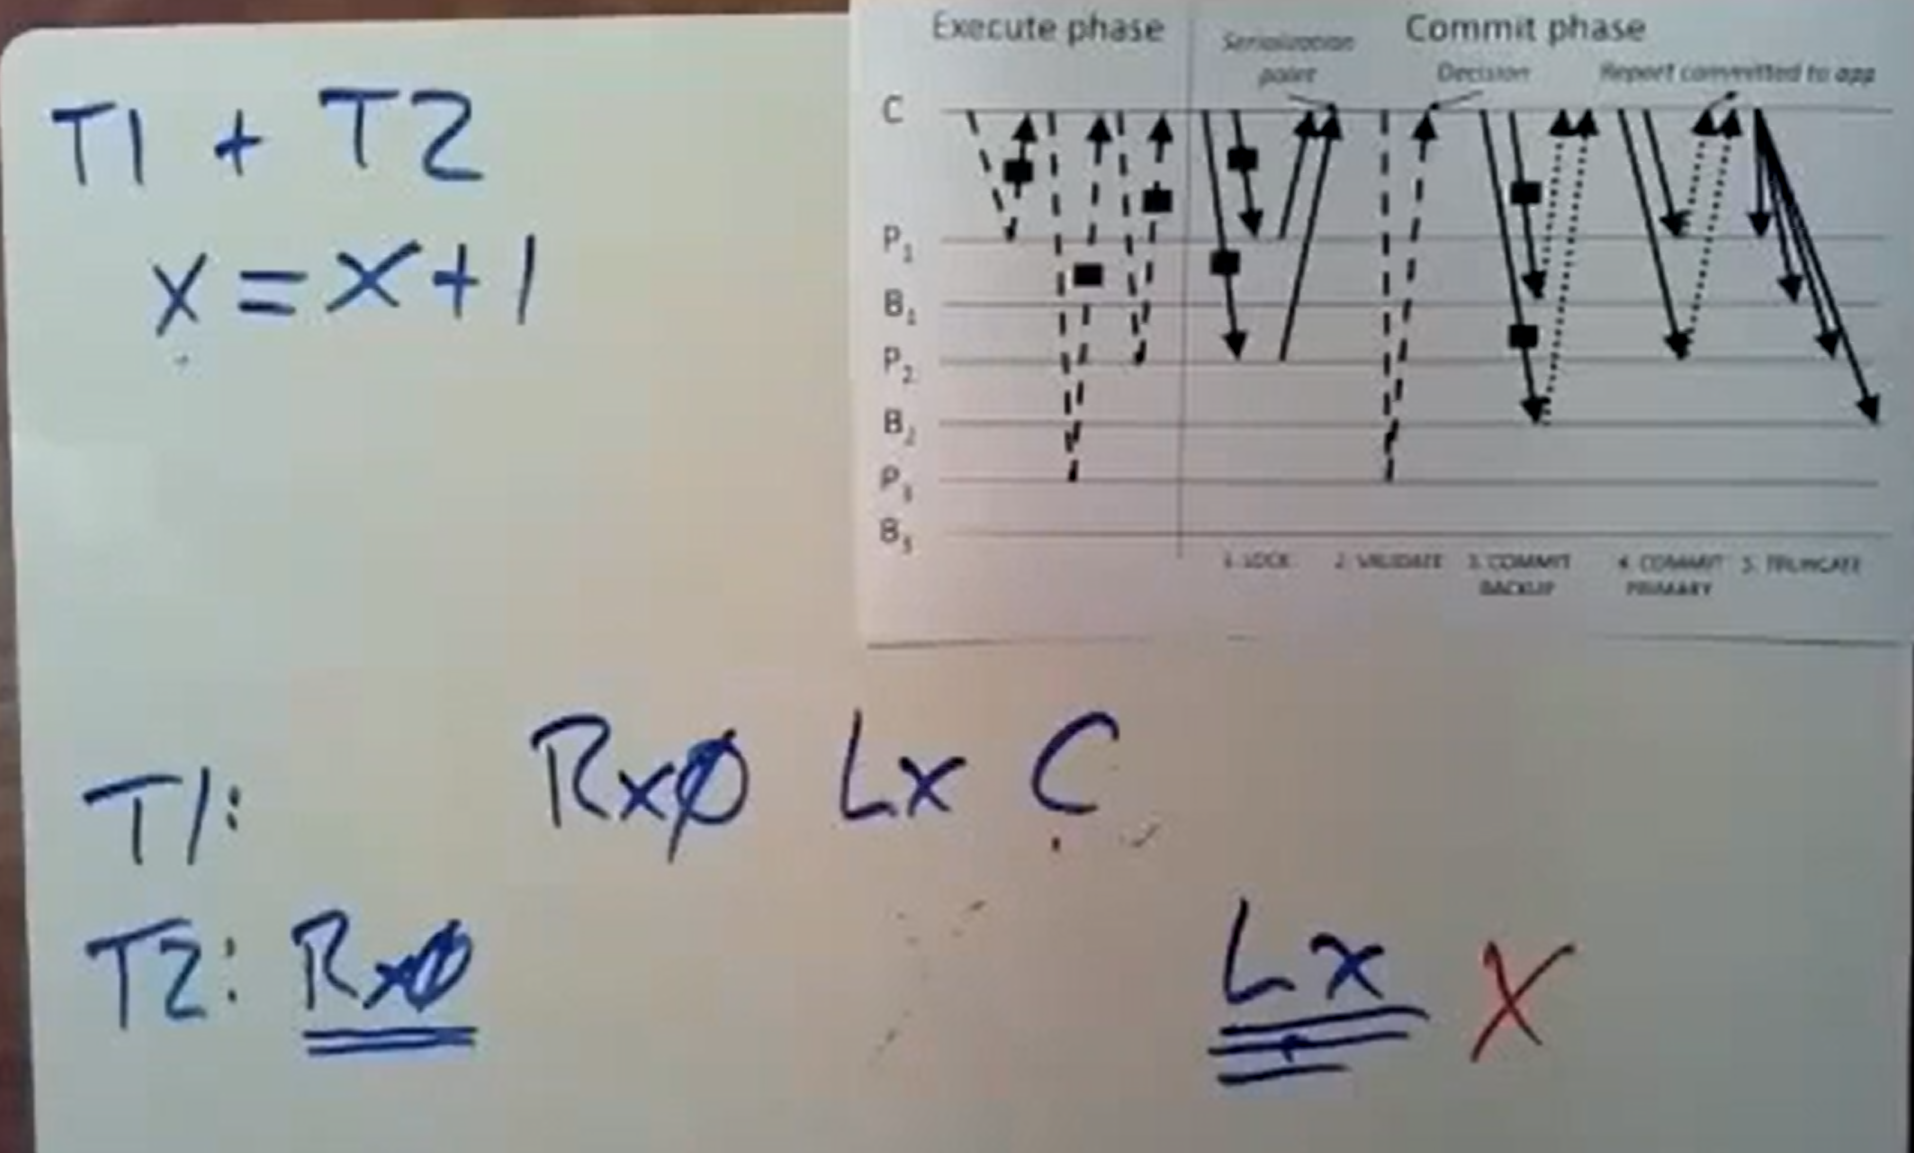 T1 + T2
x = x + 1
Execute phase
Commit phase
Serialization point
Decision
Report committed to app
C
P1
B1
P2
B2
P3
B3
1. LOCK
2. VALIDATE
3. COMMIT BACKUP
4. COMMIT PRIMARY
5. TRUNCATE
T1: Rx0 Lx C
T2: Rx0 Lx X